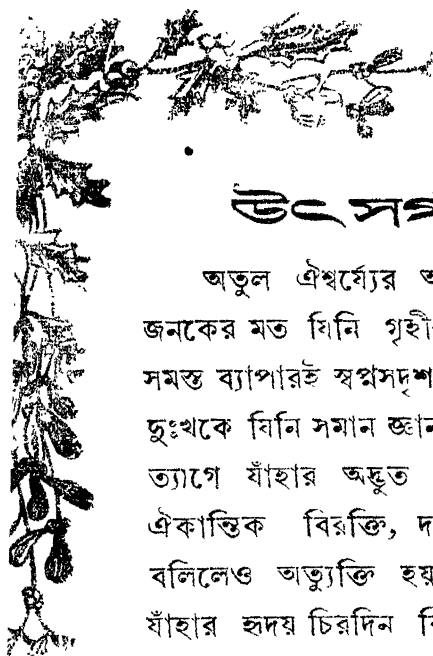 উৎসর্গ
অতুল ঐশ্বর্য্যের
জনকের মত যিনি
সমস্ত ব্যাপারই
দুঃখকে যিনি সমান
ত্যাগে যাঁহার অদ্ভুত
ঐকান্তিক বিরক্তি,
বলিলেও অত্যুক্তি হয়
যাঁহার হৃদয় চিরদিন